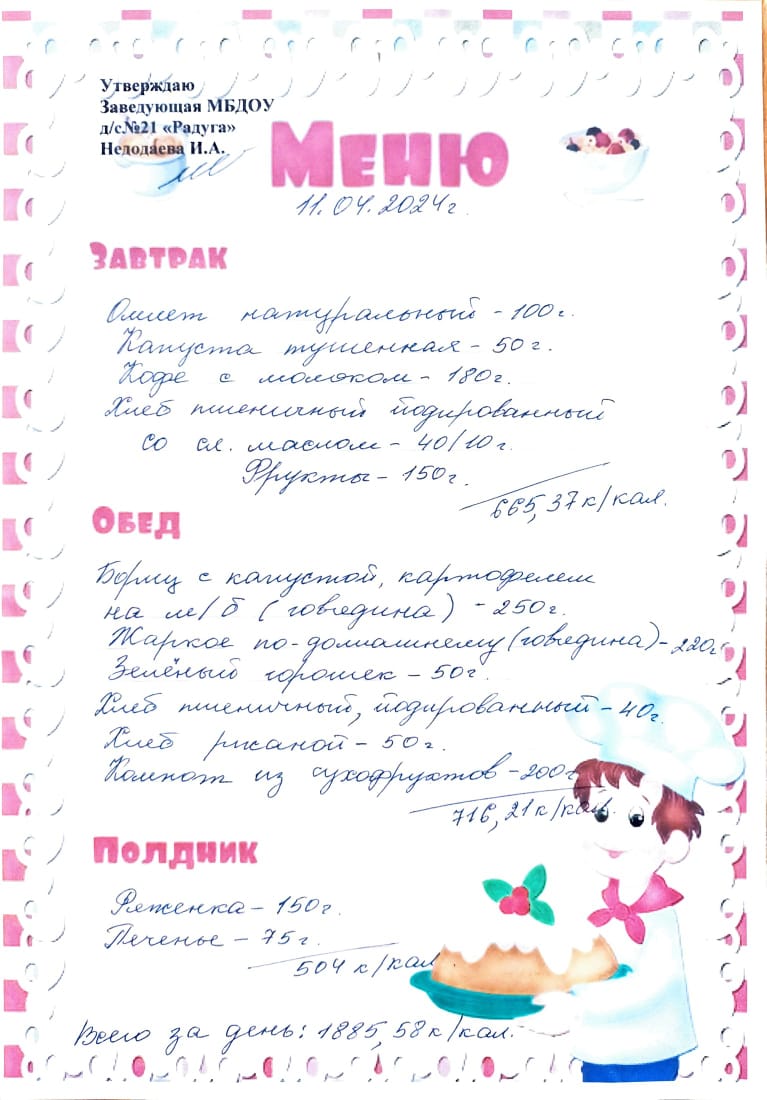 Утверждаю
Заведующая МБДОУ
д/с.№21 «Радуга»
Недодаева И.А.
Меню
11.04.2024г.
Завтрак
Омлет натуральный - 100г.
Капуста тушенная - 50г.
Кофе с молоком - 180г.
Хлеб пшеничный йодированный
со сл. маслом - 40/10г.
Фрукты - 150г.
665,37 к/кал.
Обед
Борщ с капустой, картофелем
на м/б (говядина) - 250г.
Жаркое по-домашнему (говядина) - 220г
Зелёный горошек - 50г.
Хлеб пшеничный, йодированный - 40г.
Хлеб ржаной - 50г.
Компот из сухофруктов - 200г
716,21 к/кал.
Полдник
Ряженка - 150г.
Печенье - 75г.
504 к/кал.
Всего за день: 1885,58 к/кал.